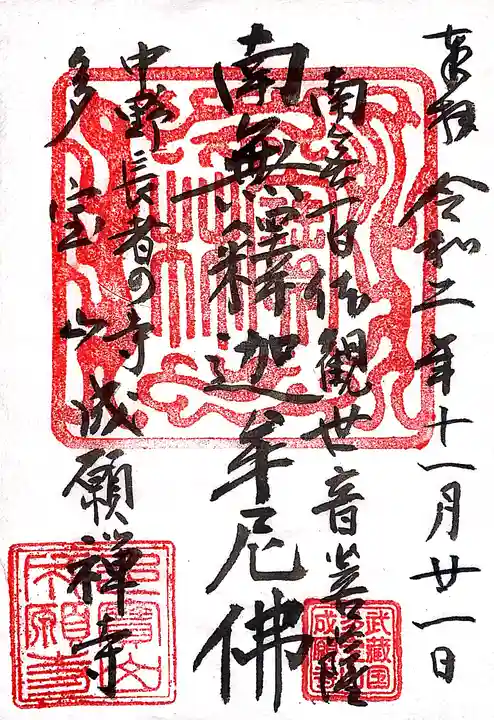 奉拝 令和二年十一月廿一日
南無百体観世音菩薩
南無釋迦牟尼佛
中野長者の寺
多宝山成願禅寺
武蔵国
成願寺